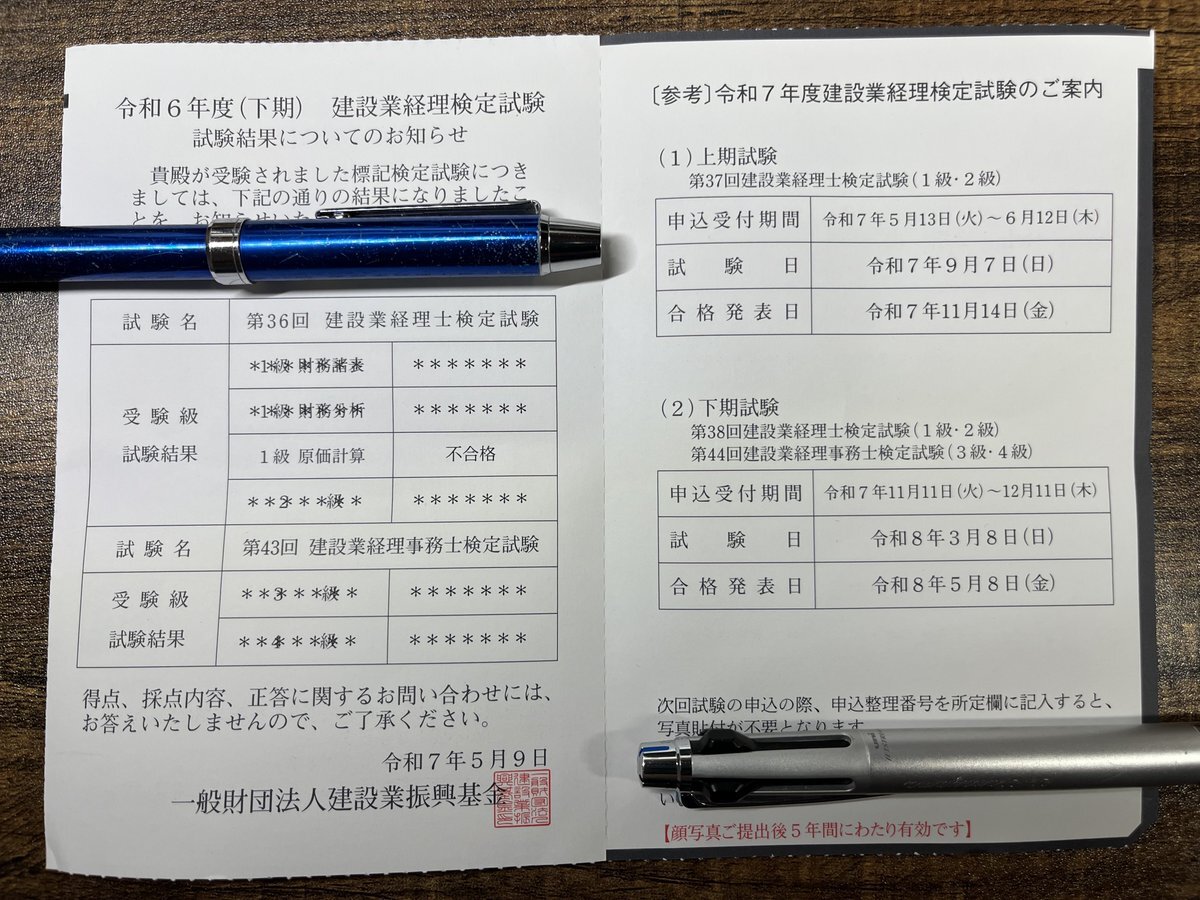 令和６年度(下期)　建設業経理検定試験
試験結果についてのお知らせ
貴殿が受験されました標記検定試験につき
ましては、下記の通りの結果になりましたこ
とを、お知らせいた
試験名　第36回 建設業経理士検定試験
受験級
試験結果
１級 財務諸表　＊＊＊＊＊＊＊
１級 財務分析　＊＊＊＊＊＊＊
１級 原価計算　不合格
２　級　＊＊＊＊＊＊＊
試験名　第43回 建設業経理事務士検定試験
受験級
試験結果
３　級　＊＊＊＊＊＊＊
４　級　＊＊＊＊＊＊＊
得点、採点内容、正答に関するお問い合わせには、
お答えいたしませんので、ご了承ください。
令和７年５月９日
一般財団法人建設業振興基金
〔参考〕令和７年度建設業経理検定試験のご案内
(１)上期試験
第37回建設業経理士検定試験(１級・２級)
申込受付期間　令和７年５月13日(火)～６月12日(木)
試験日　令和７年９月７日(日)
合格発表日　令和７年11月14日(金)
(２)下期試験
第38回建設業経理士検定試験(１級・２級)
第44回建設業経理事務士検定試験(３級・４級)
申込受付期間　令和７年11月11日(火)～12月11日(木)
試験日　令和８年３月８日(日)
合格発表日　令和８年５月８日(金)
次回試験の申込の際、申込整理番号を所定欄に記入すると、
写真貼付が不要となります
い
【顔写真ご提出後５年間にわたり有効です】